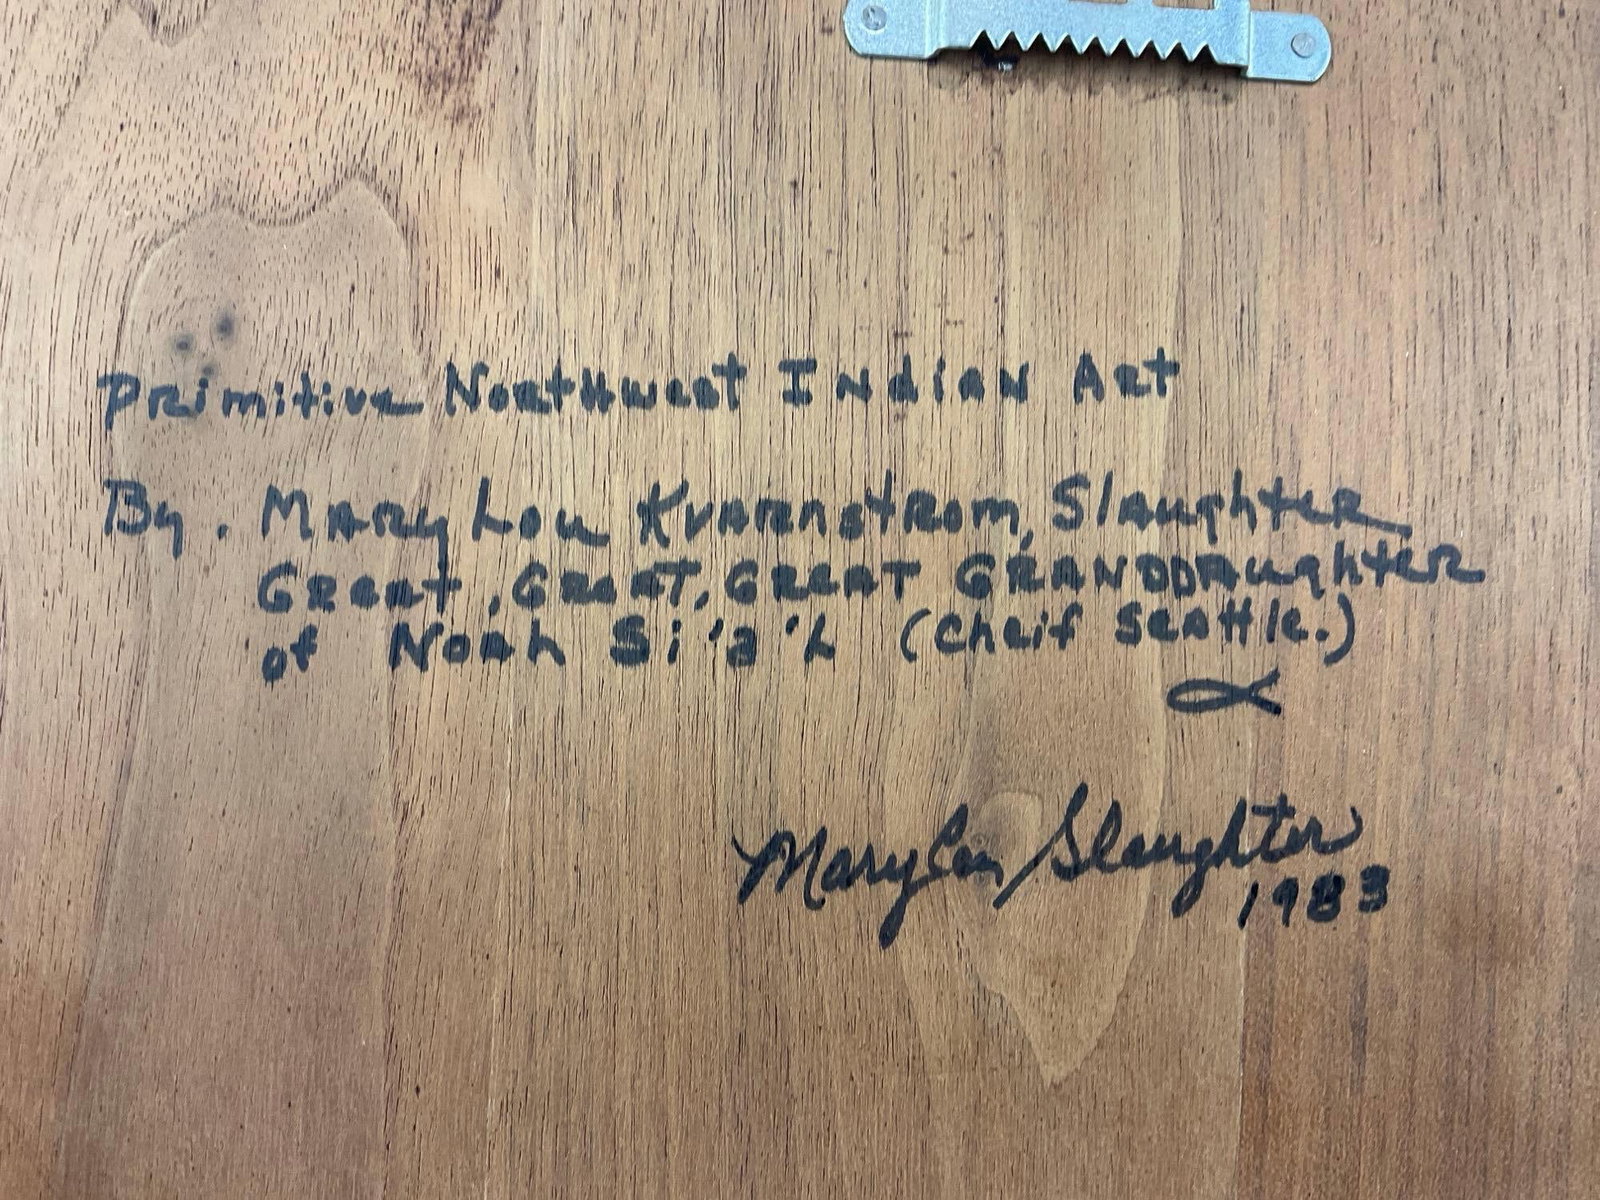 Primitive Northwest Indian Art
By. Mary Lou Kvarnstrom, Slaughter
Great, Great, Great Granddaughter
of Noah Si'a'h (Cheif Seattle.)
Mary Lou Slaughter
1983